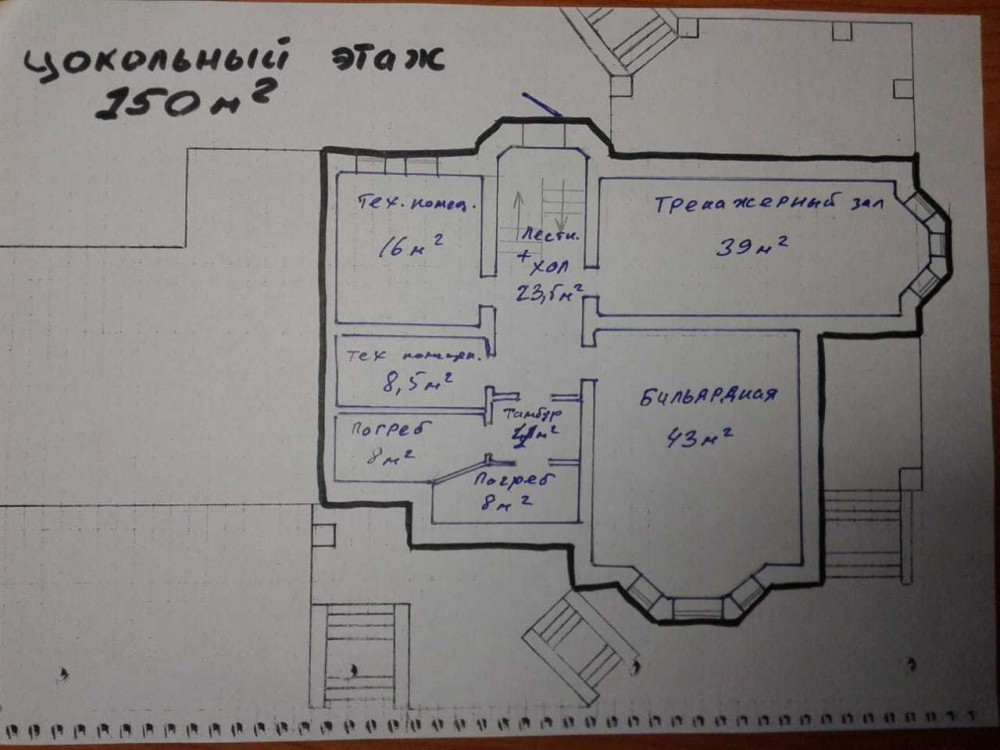 цокольный этаж
150 м²
Тех. помещ.
16 м²
Лестн.
+
ХОЛ
23,5 м²
Тренажерный зал
39 м²
Тех помещен.
8,5 м²
Бильярдная
43 м²
Тамбур
м²
Погреб
8 м²
Погреб
8 м²